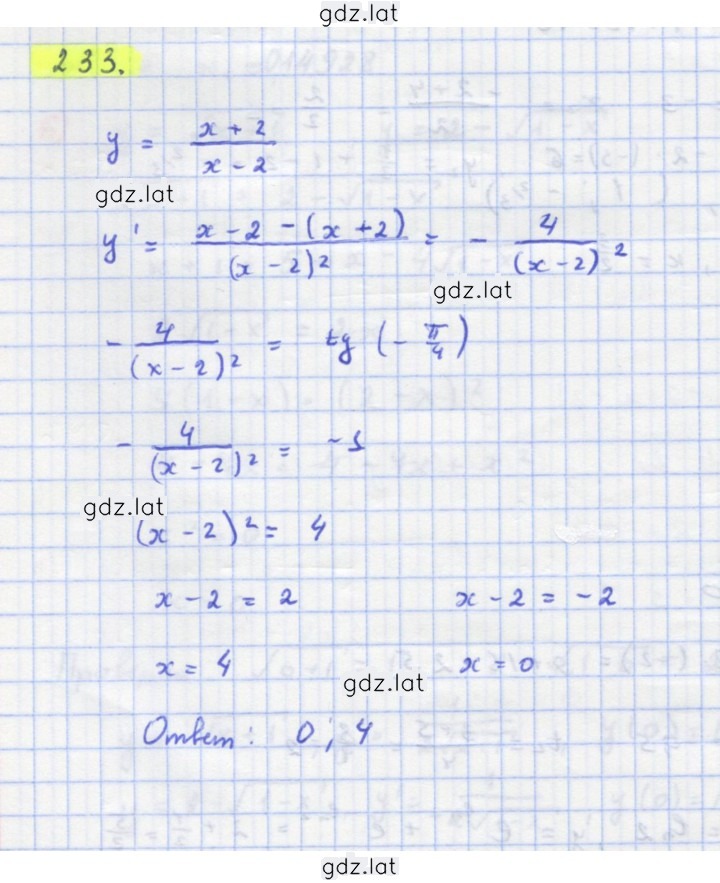 gdz.lat
233.
y = (x + 2)/(x - 2)
gdz.lat
y' = (x - 2 - (x + 2))/(x - 2)² = - 4/(x - 2)²
gdz.lat
- 4/(x - 2)² = tg (- π/4)
- 4/(x - 2)² = -1
gdz.lat
(x - 2)² = 4
x - 2 = 2 x - 2 = -2
x = 4 x = 0
gdz.lat
Ответ: 0; 4
gdz.lat